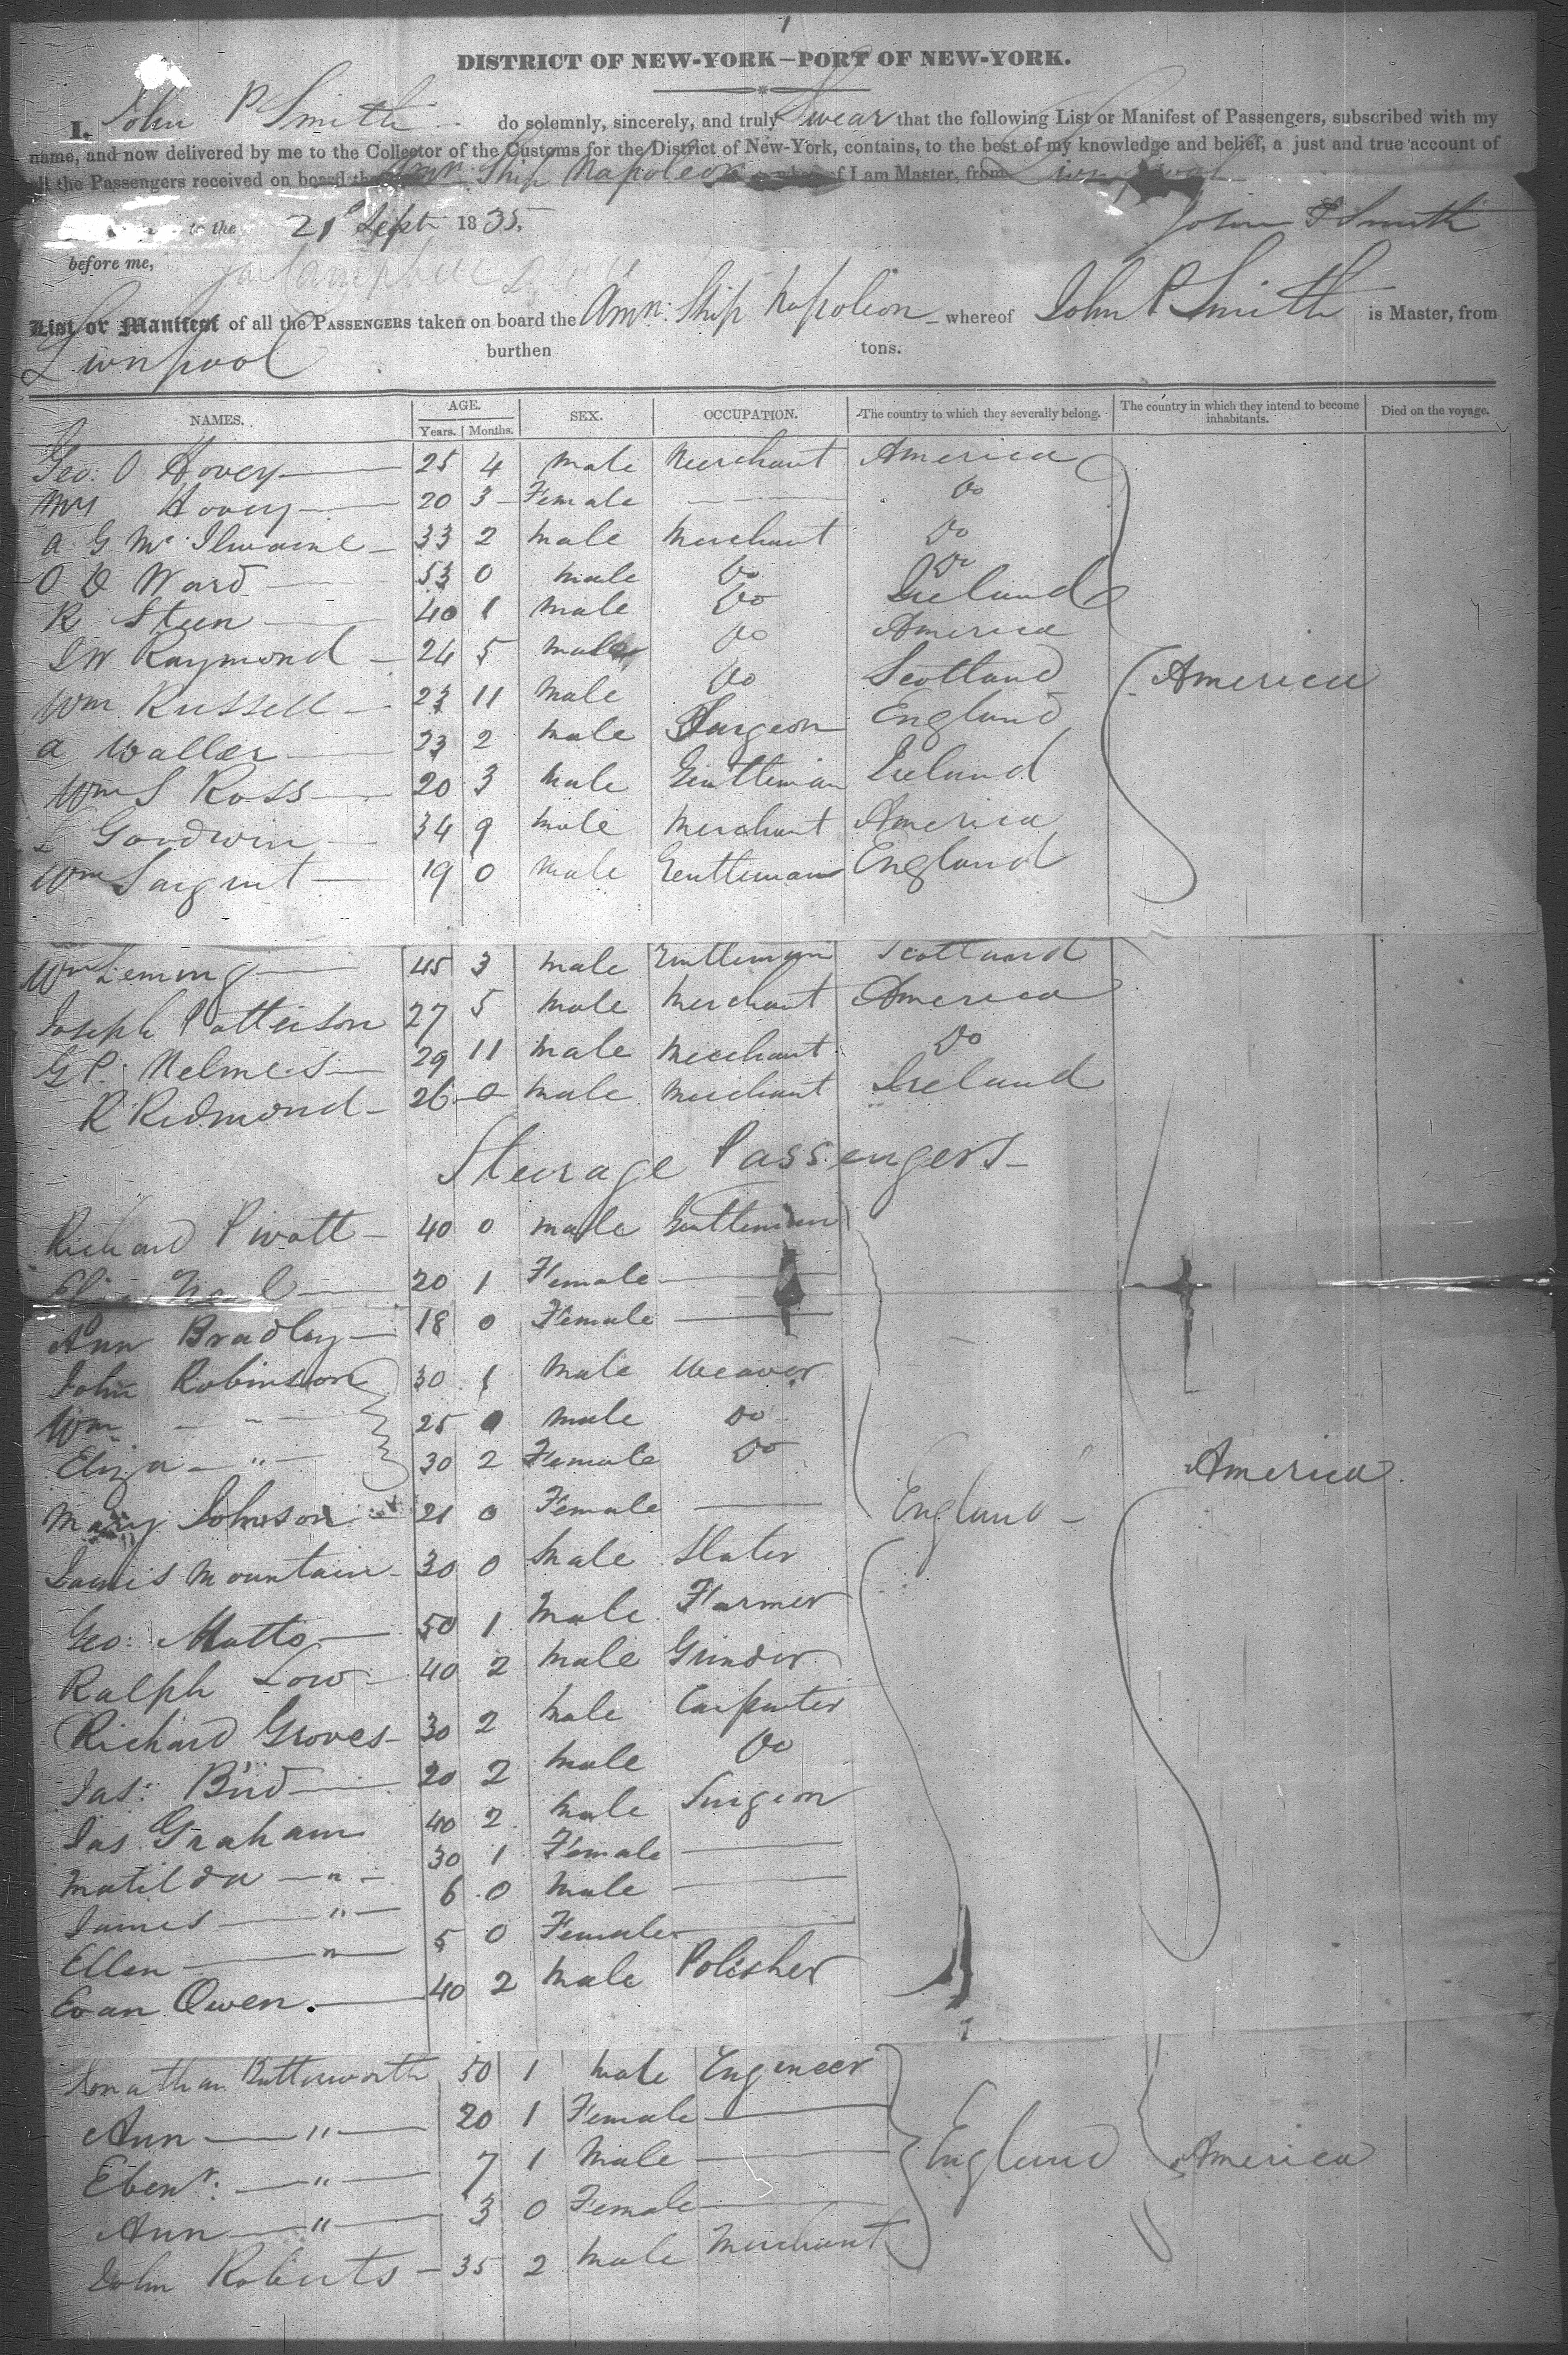 1
DISTRICT OF NEW-YORK—PORT OF NEW-YORK.
I, John P Smith do solemnly, sincerely, and truly Swear that the following List or Manifest of Passengers, subscribed with my
name, and now delivered by me to the Collector of the Customs for the District of New-York, contains, to the best of my knowledge and belief, a just and true account of
all the Passengers received on board the Amn: Ship Napoleon whereof I am Master, from Liverpool
to the 21st Sept 1835. John P Smith
before me,
List or Manifest of all the PASSENGERS taken on board the Amn: Ship Napoleon whereof John P Smith is Master, from
Liverpool burthen tons.
NAMES. AGE. Years. Months. SEX. OCCUPATION. The country to which they severally belong. The country in which they intend to become inhabitants. Died on the voyage.
Geo: O Hovey 25 4 male Merchant America
Mrs Hovey 20 3 Female Do
A G McIlwaine 33 2 male Merchant Do
O D Ward 53 0 male Do Do
R Steen 40 1 male Do Ireland
I W Raymond 24 5 male Do America
Wm Russell 23 11 male Do Scotland America
A Waller 23 2 male Surgeon England
Wm S Ross 20 3 male Gentleman Ireland
Goodwin 34 9 male Merchant America
Wm Sargint 19 0 male Gentleman England
Wm Leming 45 3 male Gentleman Scotland
Joseph Patterson 27 5 male Merchant America
G P: Nelmes 29 11 male Merchant Do
R Ridmond 26 0 male Merchant Ireland
Steerage Passengers
Richard Pwott 40 0 male Gentleman
Eliza Neal 20 1 Female
Ann Bradley 18 0 Female
John Robinson 30 1 male Weaver
Wm " 25 0 male Do
Eliza " 30 2 Female Do America
Mary Johnson 21 0 Female England
James Mountain 30 0 male Slater
Geo: Matts 50 1 male Farmer
Ralph Low 40 2 male Grinder
Richard Groves 30 2 male Carpenter
Jas: Bird 20 2 male Do
Jas Graham 40 2 male Surgeon
Matilda " 30 1 Female
James " 6 0 male
Ellen " 5 0 Female
Evan Owen 40 2 male Polisher
Jonathan Butterworth 50 1 male Engineer
Ann " 20 1 Female
Ebenr: " 7 1 male England America
Ann " 3 0 Female
John Roberts 35 2 male Merchant